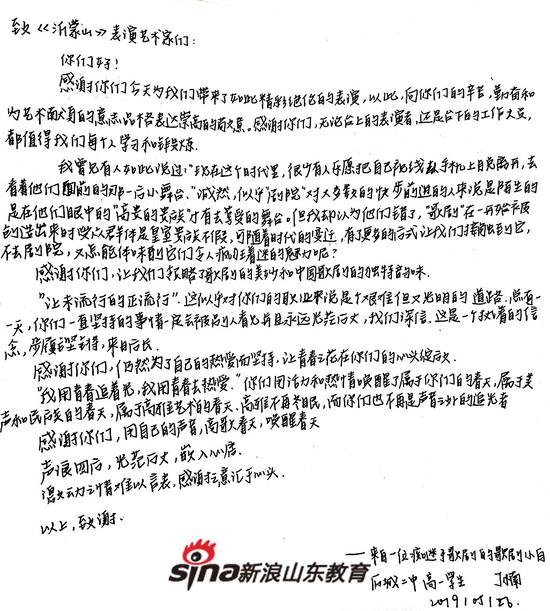 致《沂蒙山》表演艺术家们:
你们好!
感谢你们今天为我们带来了如此精彩绝伦的表演,以此,向你们的辛苦,勤奋和
为艺术而献身的意志品格表达崇高的敬意。感谢你们,无论台上的表演者,还是台下的工作人员,
都值得我们每个人学习和锻炼.
我曾见有人如此说过:"现在这个时代里,很少有人乐愿把自己视线从手机上目光离开,去
看着他们面前的那一后小舞台."诚然,似乎"剧院"对大多数的快步前进的人来说是陌生的
是在他们眼中的"高贵的贵族"才有去享受的舞台.但我却认为他们错了,"歌剧"在一开始发展
创造出来时受众群体是皇室贵族不假,可随着时代的变迁,有了更多的方式让我们接触到它,
不去剧院,又怎能体味到它们令人疯狂着迷的魅力呢?
感谢你们,让我们领略了歌剧的美妙和中国歌剧的独特韵味.
"让未流行的正流行".这似乎对你们的职业来说是个艰难但又光明的道路.总有
一天,你们一直坚持的事情一定会被别人看见并且永远光芒万丈,我们深信.这是一个执着的信
念,步履坚持,来日方长.
感谢你们,仍然为了自己的热爱而坚持,让青春之花在你们的心头绽放.
"我用青春追着光,我用青春去热爱."你们用活力和热情唤醒了属于你们的春天,属于美
声和民族的春天,属于高雅艺术的春天.高雅不再冬眠,而你们也不再是声音之外的追光者
感谢你们,用自己的声音,高歌春天,唤醒春天
声浪四启,光芒万丈,嵌入心底.
激动之情难以言表,感谢之意汇于心头.
以上,致谢.
——来自一位痴迷于歌剧的歌剧小白
二中高一学生
sina新浪山东教育